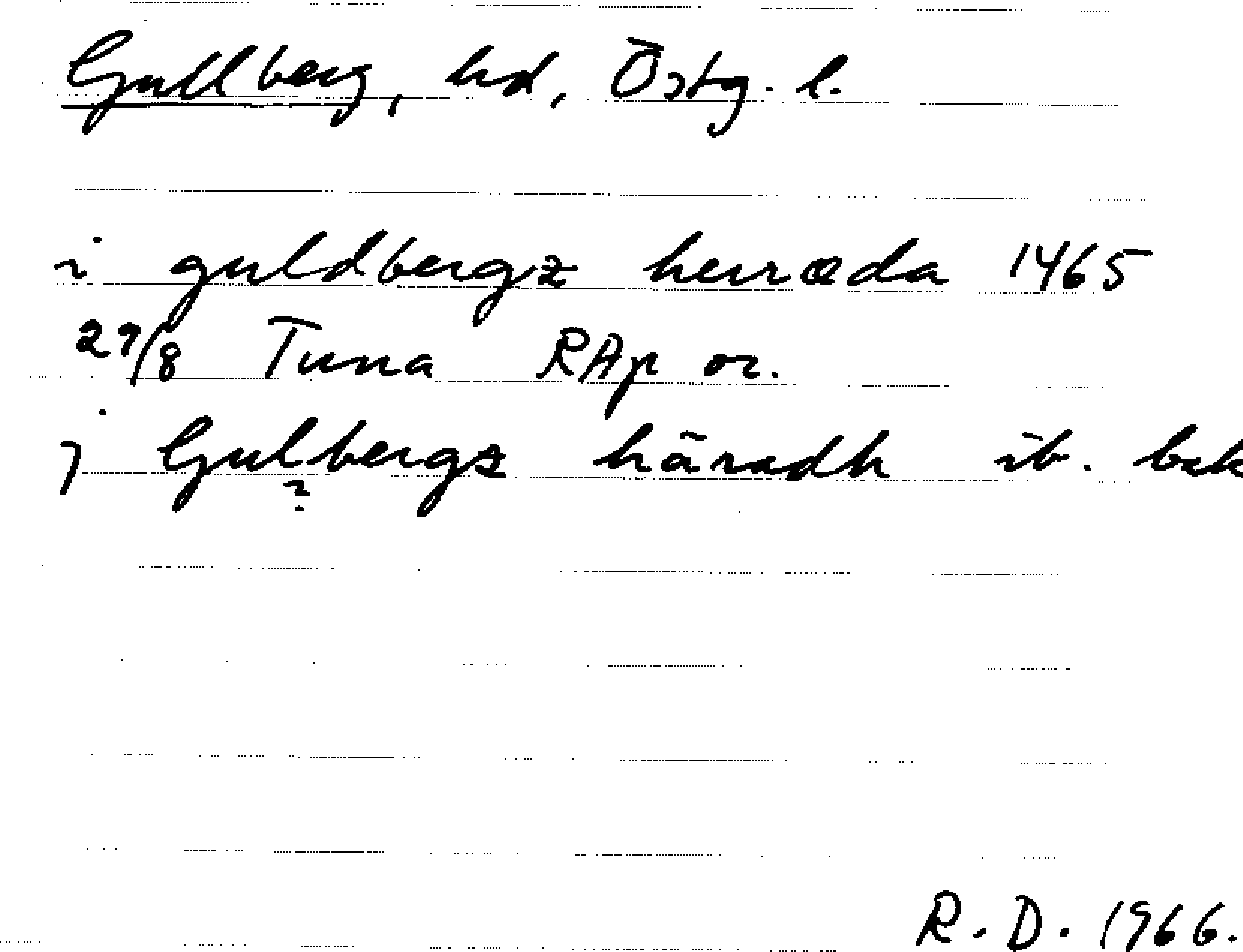 Gullberg, hd, Östg. l.
i guldbergz herræda 1465
29/8 Tuna RAp or.
j Gulbergz häradh ib. bak
?
R. D. 1966.